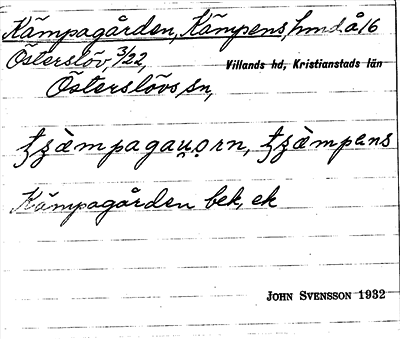 Kämpagården, Kämpens, hmd å 16
Österslöv, 3/22, Villands hd, Kristianstads län
Österslövs sn,
ʈʂæ̀mpagau̯o̜rn, ʈʂæ̀mpens
Kämpagården bek, ek
JOHN SVENSSON 1932